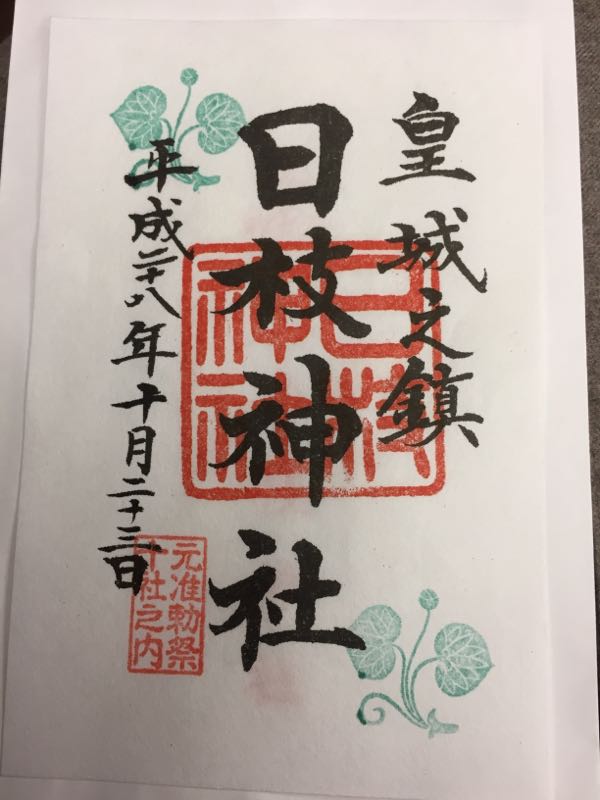 皇城之鎮
日枝神社
日枝
神社
平成二十八年十月二十三日
元准勅祭
十社之内